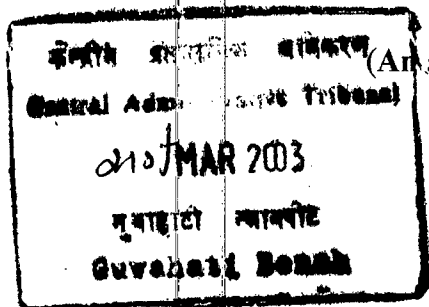 केन्द्रीय प्रशासनिक अधिकरण
(An
Central Administrative Tribunal
MAR 2003
गुवाहाटी न्यायपीठ
Guwahati Bench